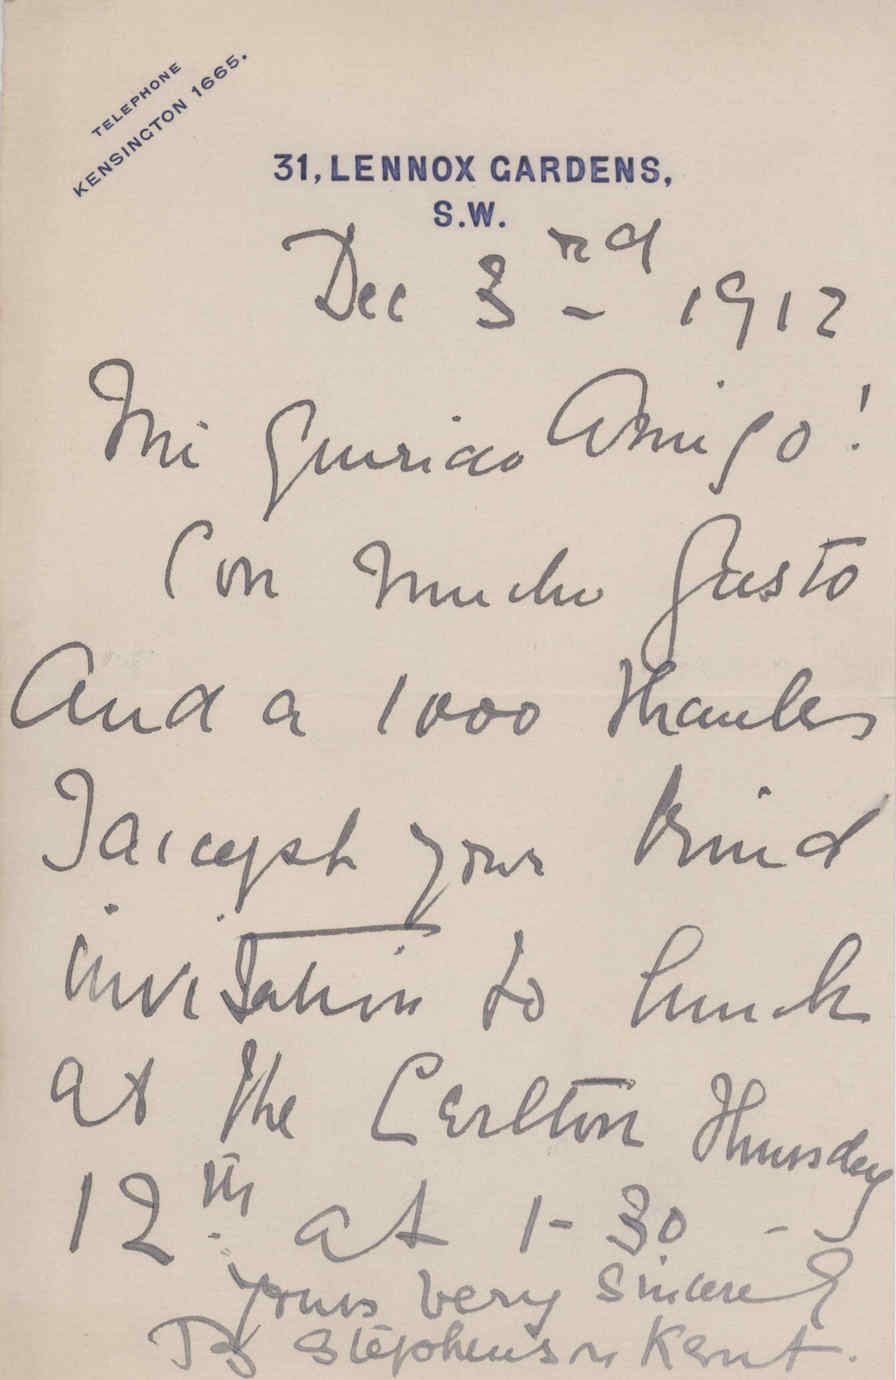 TELEPHONE
KENSINGTON 1665.
31, LENNOX GARDENS,
S.W.
Dec 3rd 1912
Mi Querido Amigo!
Con Mucho Gusto
And a 1000 thanks
I accept your kind
invitation to lunch
at the Carlton Thursday
12th at 1-30 -
Yours very sincerely
Stephenson Kent.